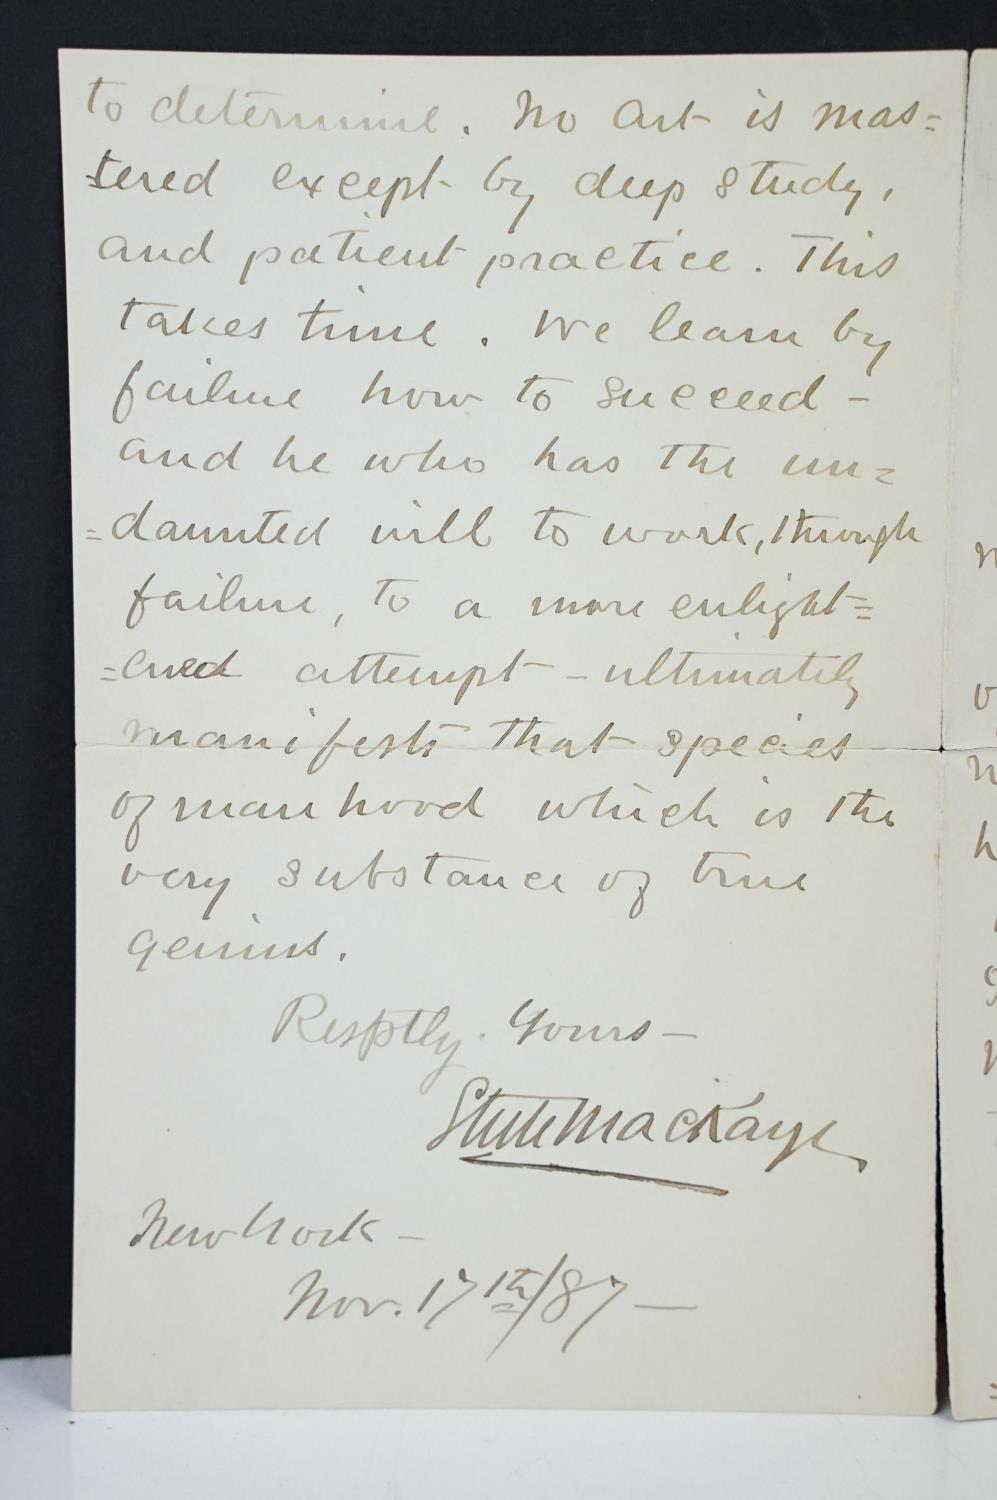 to determine. No art is mas=
=tered except by deep study,
and patient practice. This
takes time. We learn by
failure how to succeed –
and he who has the un=
=daunted will to work, through
failure, to a more enlight=
=ened attempt – ultimately
manifests that species
of manhood which is the
very substance of true
genius.
Resptly. Yours –
Steele MacKaye
New York –
Nov. 17th/87 –